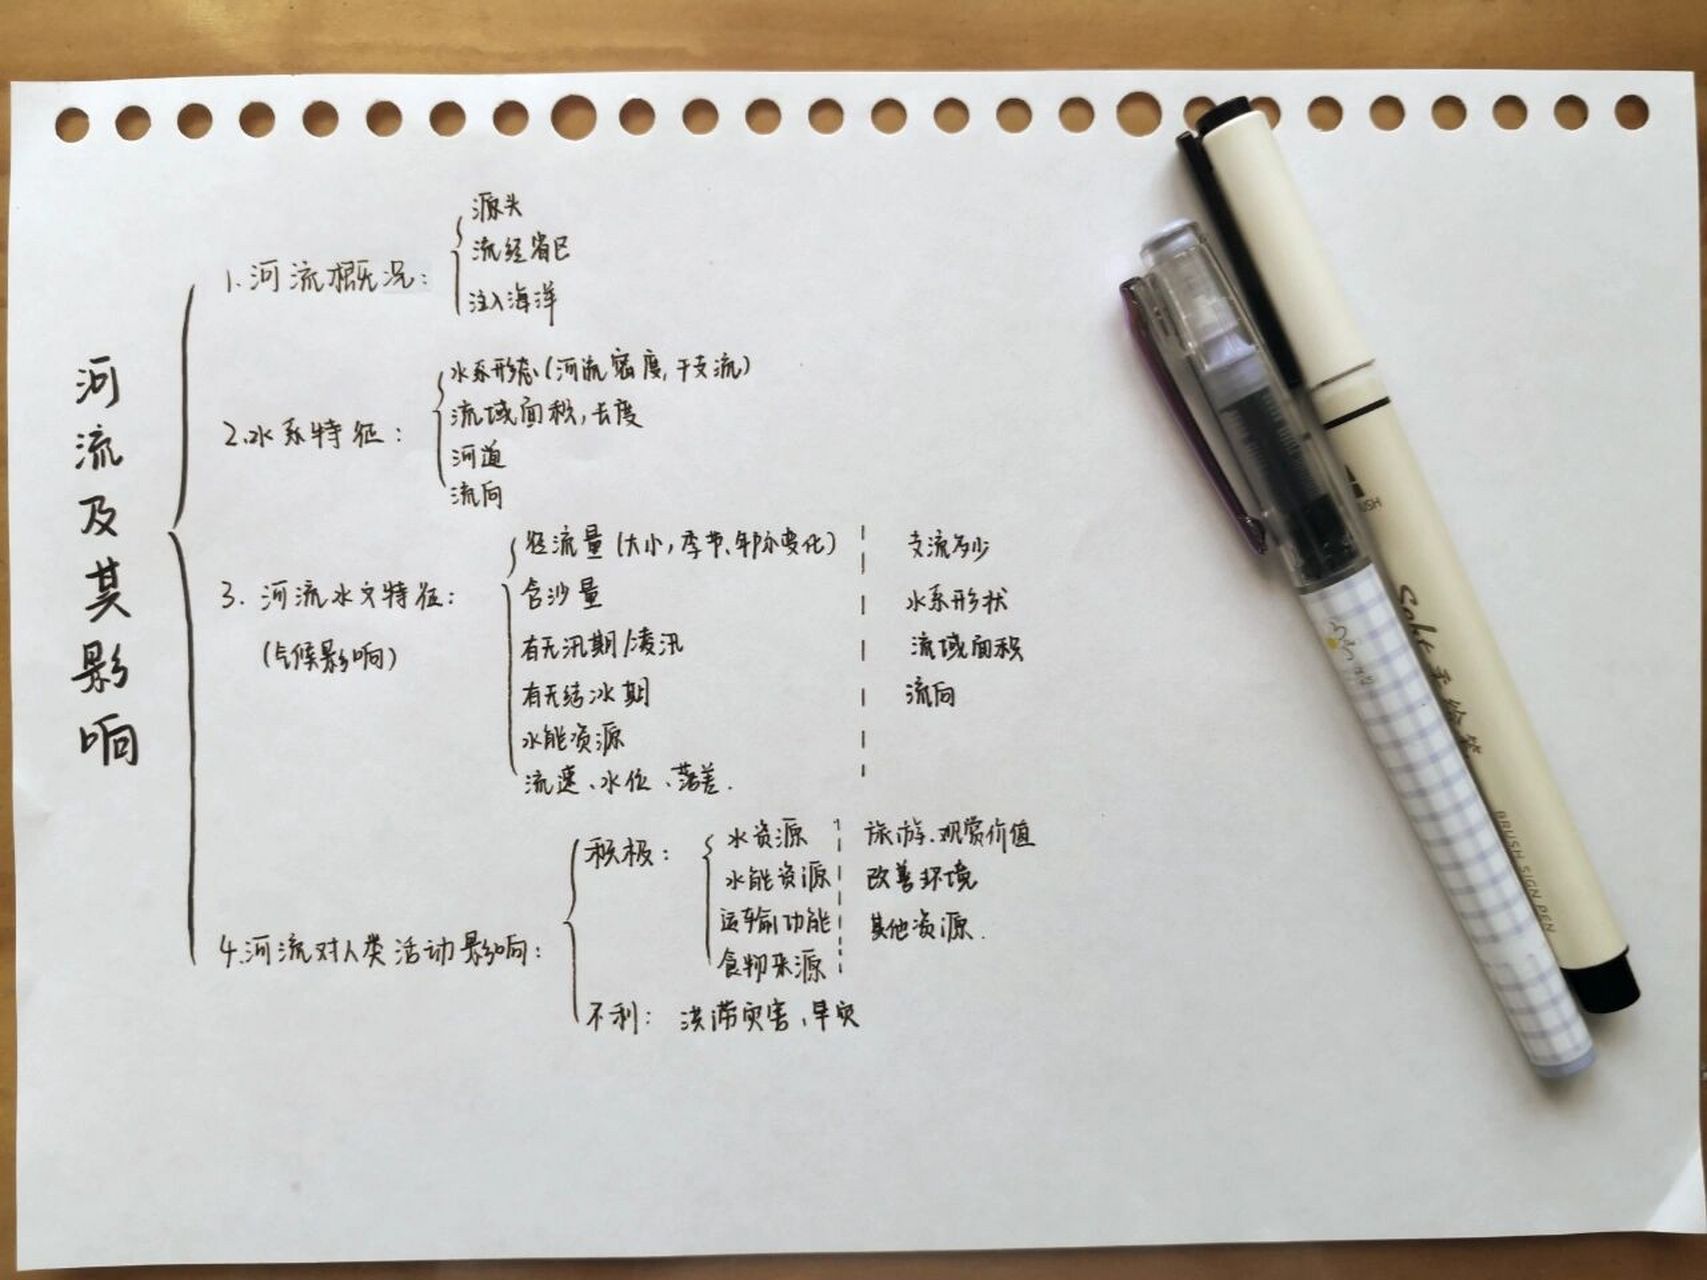 河流及其影响
1.河流概况：
源头
流经省区
注入海洋
2.水系特征：
水系形态(河流密度,干支流)
流域面积,长度
河道
流向
3.河流水文特征：
(气候影响)
径流量(大小,季节、年际变化)
含沙量
有无汛期/凌汛
有无结冰期
水能资源
流速、水位、落差.
支流多少
水系形状
流域面积
流向
4.河流对人类活动影响：
积极：
水资源
水能资源
运输功能
食物来源
旅游.观赏价值
改善环境
其他资源.
不利：洪涝灾害、旱灾
USH
BRUSH SIGN PEN